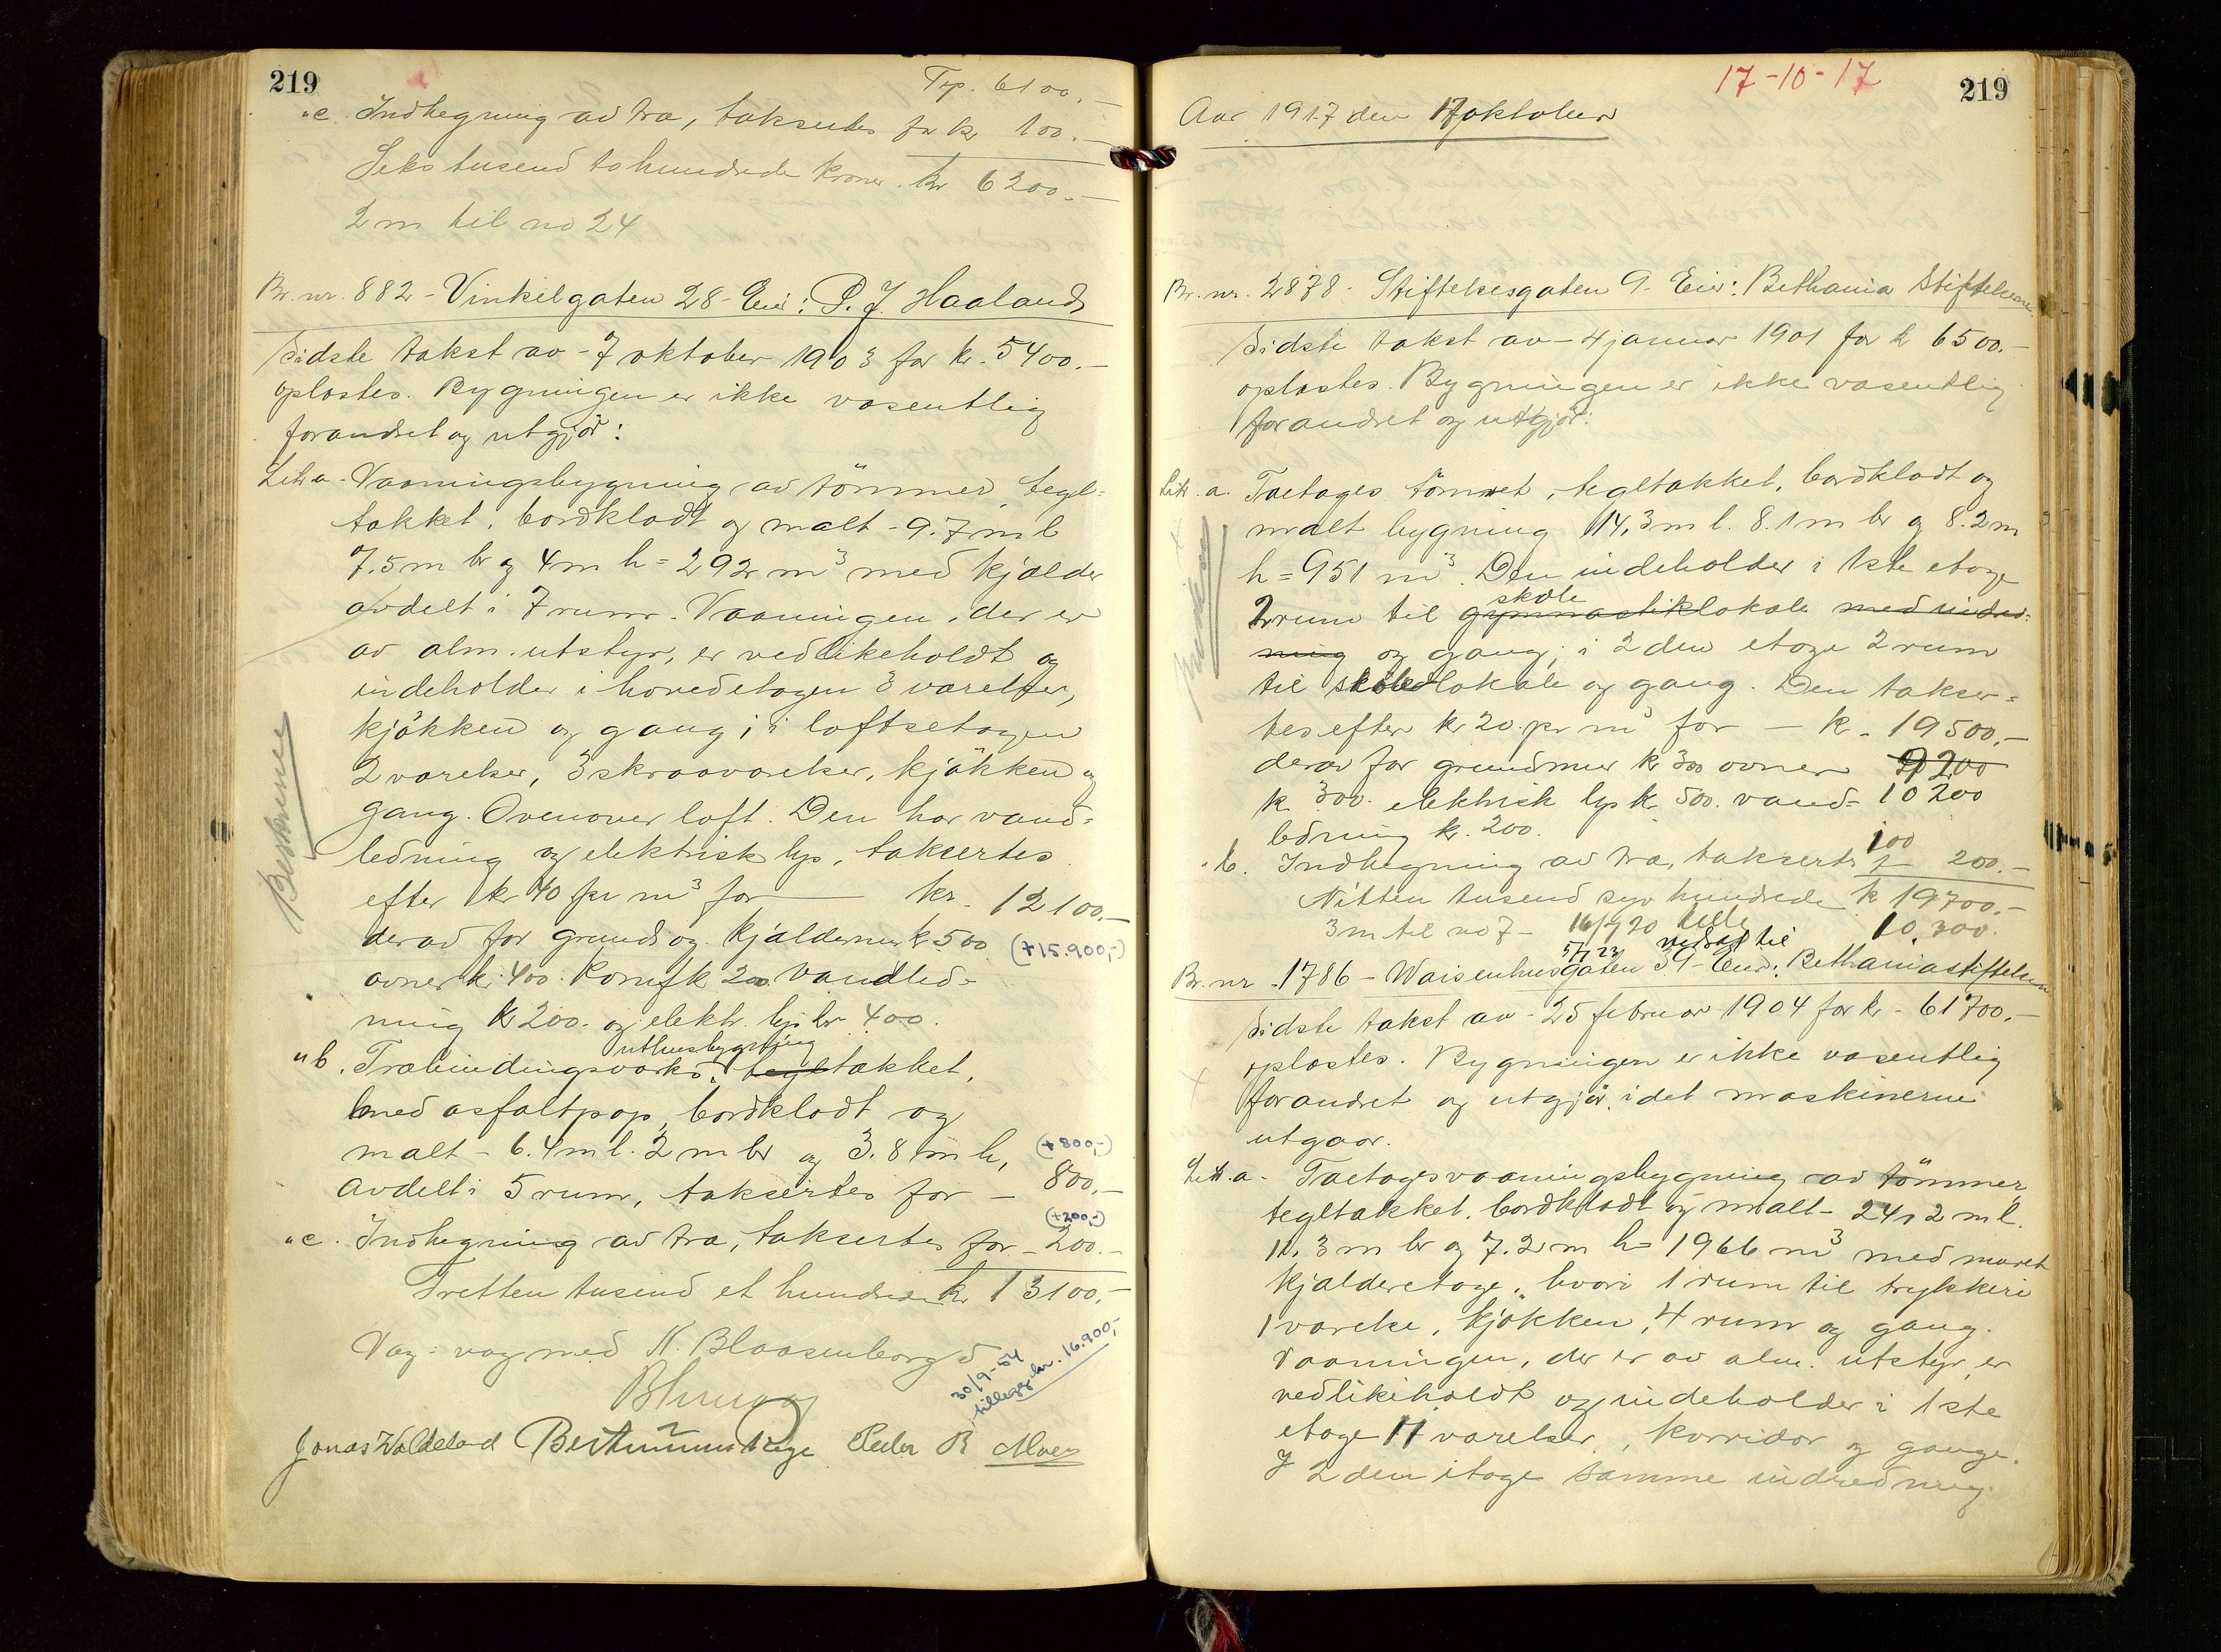 219
Trp. 6100.-
"c. Indhegning av træ, taksertes for kr 100.-
Seks tusend to hundrede kroner. kr 6200.-
2 m til no 24
Br. nr. 882 - Vinkelgaten 28 - Eier: P. J. Haaland
Sidste takst av - 7 oktober 1903 for kr. 5400.-
oplæstes. Bygningen er ikke væsentlig
forandret og utgjör:
Litr a - Vaaningsbygning av tömmer tegl-
tækket, bordklædt og malt - 9.7 m l
7.5 m br og 4 m h = 292 m³ med kjælder
avdelt i 7 rum. Vaaningen, der er
av alm. utstyr, er vedlikeholdt og
indeholder i hovedetagen 3 værelser,
kjökken og gang; i loftsetagen
2 værelser, 3 skraaværelser, kjökken og
gang. Ovenover loft. Den har vand-
ledning og elektrisk lys, taksertes
efter kr 40 pr m³ for kr. 12100.-
derav for grund og kjældermur kr 500 (+15.900,-)
ovner kr. 400. Komf k 200 Vandled-
ning kr 200. og elektr. lys kr 400.
uthusbygning
"b. Træbindingsværks, tegltækket,
med asfaltpap, bordklædt og
malt - 6.4 m l. 2 m br og 3.8 m h, (+800,-)
avdelt i 5 rum, taksertes for - 800.-
(+200,-)
"c. Indhegning av træ, taksertes for - 200.-
Tretten tusend et hundrede kr 13100.-
Beskrive
Vag: vag med K. Blaasenborg
30/9-54
tillegg kr. 16.900,-
Jonas Waldeland Peder R Alver
17-10-17
219
Aar 1917 den 17 oktober
Br. nr. 2878 - Stiftelsesgaten 9 - Eier: Bethania Stiftelserne
Sidste takst av - 4 januar 1901 for k 6500.-
oplæstes. Bygningen er ikke væsentlig
forandret og utgjör:
Litr. a. Toetages tömret, tegltækket, bordklædt og
malt bygning 14,3 m l. 8.1 m br og 8.2 m
h = 951 m³. Den indeholder i 1ste etage
skole
2 rum til gymnastiklokale med indred-
ning og gang; i 2den etage 2 rum
til skolelokale og gang. Den takser-
tes efter kr 20 pr m³ for - k. 19500.-
derav for grundmur kr 300 ovner 9200
k 300. elektrisk lys k. 500. vand- 10200
ledning k. 200.
100
"b. Indhegning av træ, taksertes 200.-
Nitten tusend syv hundrede k 19700.-
3 m til no 7 - 10.300.
Br. nr. 1786 - Waisenhusgaten 39 - Eier: Bethaniastiftelsen
Sidste takst av - 25 februar 1904 for kr - 61700.-
oplæstes. Bygningen er ikke væsentlig
forandret og utgjör, idet maskinerne
utgaar.
Litr. a - Toetages vaaningsbygning av tömmer
tegltækket, bordklædt og malt - 24,2 m l.
11.3 m br og 7.2 m h = 1966 m³ med muret
kjælderetage, hvori 1 rum til trykkeri
1 værelse, kjökken, 4 rum og gang.
Vaaningen, der er av alm. utstyr, er
vedlikeholdt og indeholder i 1ste
etage 11 værelser, korridor og gange.
I 2den etage samme indredning